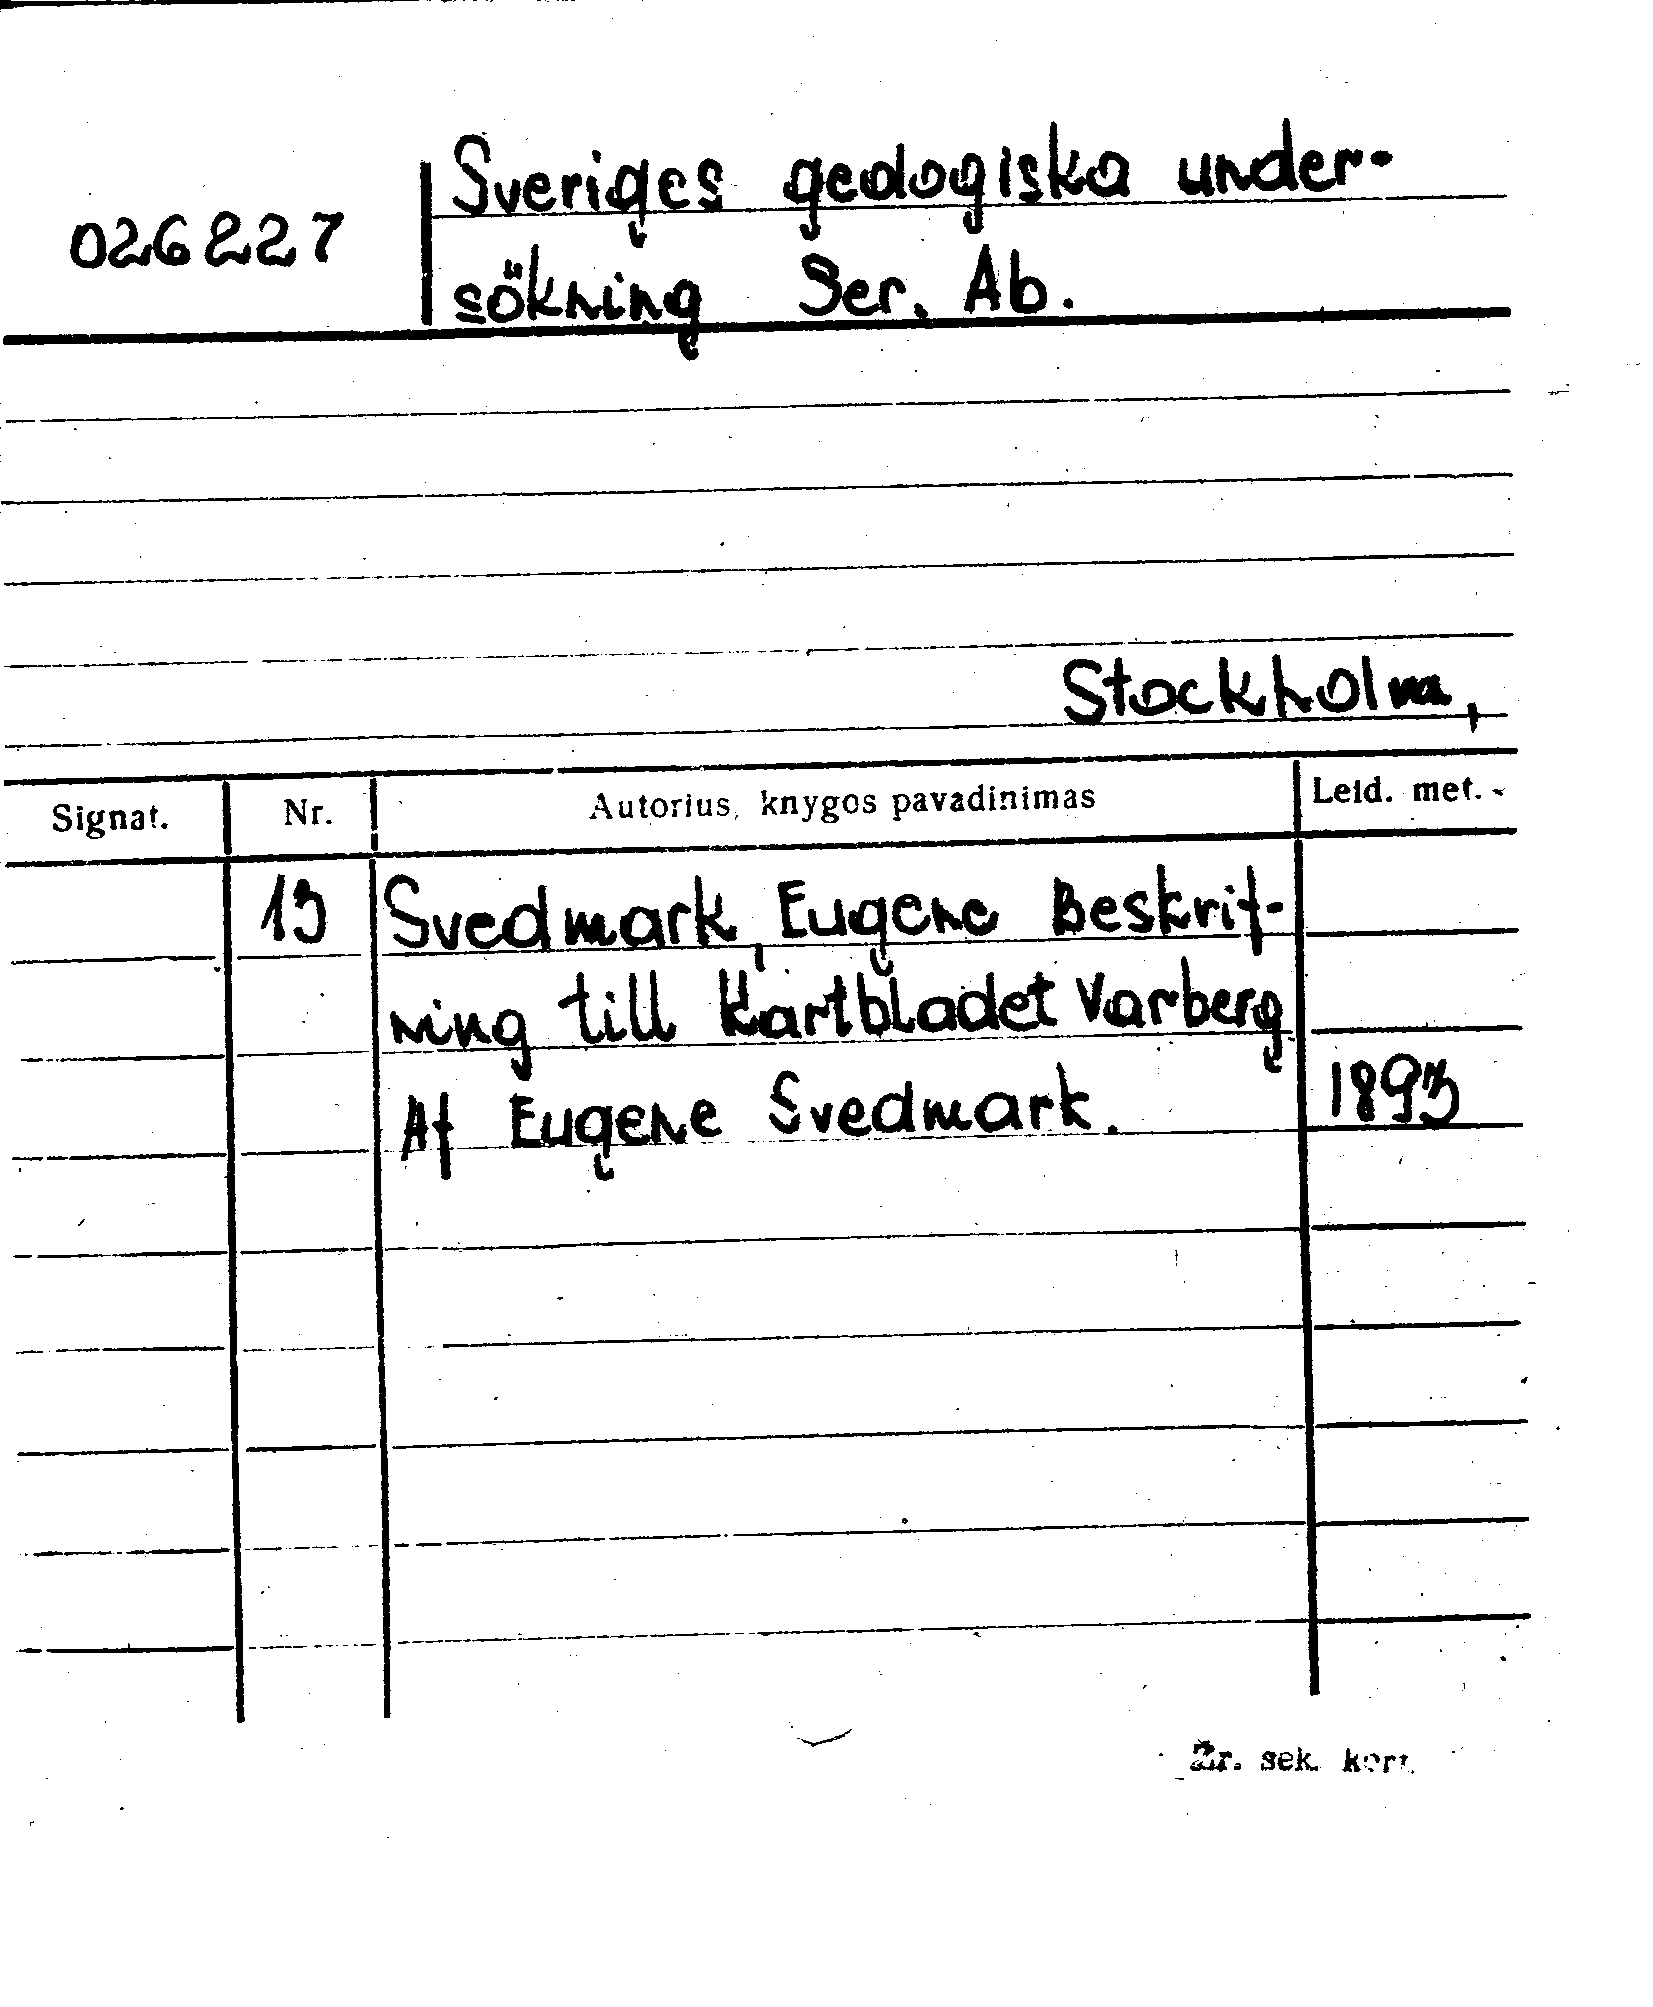 Sveriges geologiska under-
026227
sökning Ser. Ab.
Stockholm,
Signat. Nr. Autorius, knygos pavadinimas Leid. met.
13 Svedmark, Eugene Beskrif-
ning till Kartbladet Varberg
Af Eugene Svedmark. 1893
Žr. sek. kort.